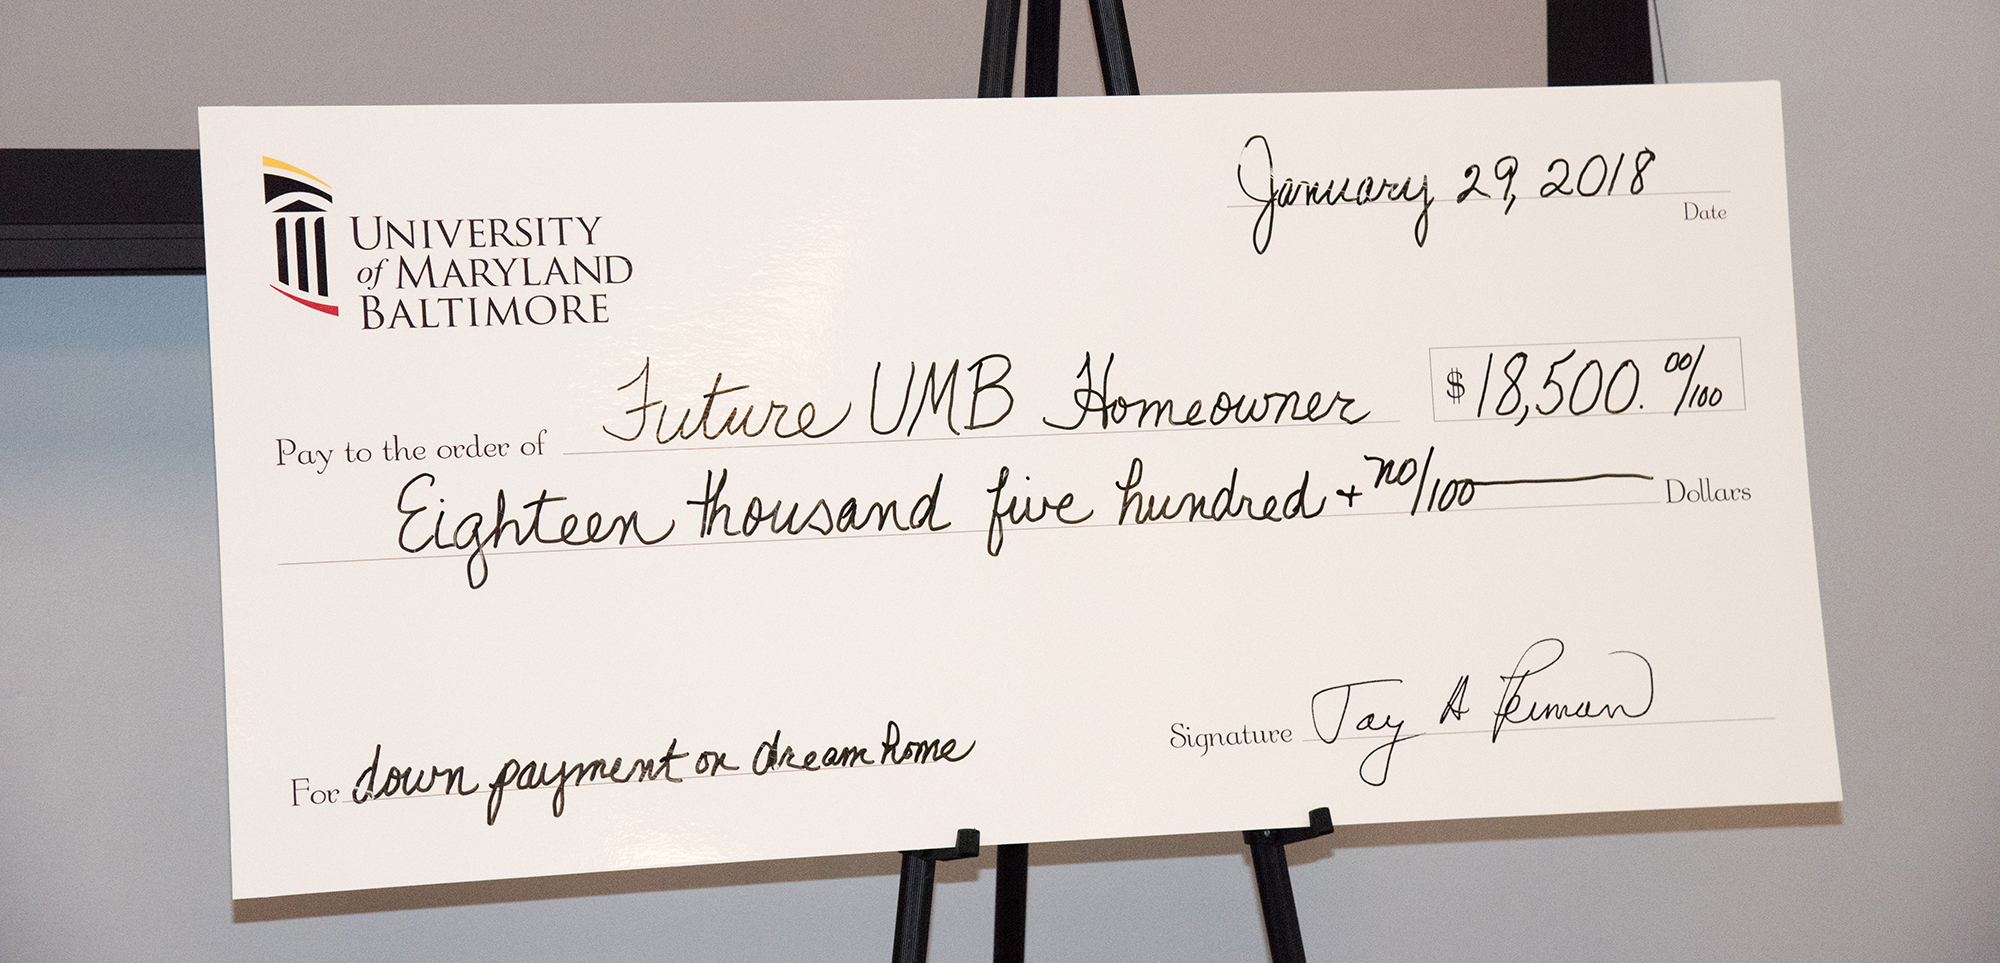 UNIVERSITY
of MARYLAND
BALTIMORE
January 29, 2018
Date
Pay to the order of Future UMB Homeowner $18,500. 00/100
Eighteen thousand five hundred + no/100 Dollars
For down payment on dream home
Signature Jay A Perman